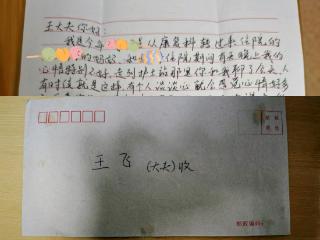 王大夫你好:
我是今年 是从康复科转过来住院的
的妈妈, 住院期间有天晚上我的
心情特别不好, 走到护士站那里你和我聊了会天, 人
有时候就是这样, 有个人谈谈心就会感觉心情好多
王 飞 (大夫) 收
邮政编码: